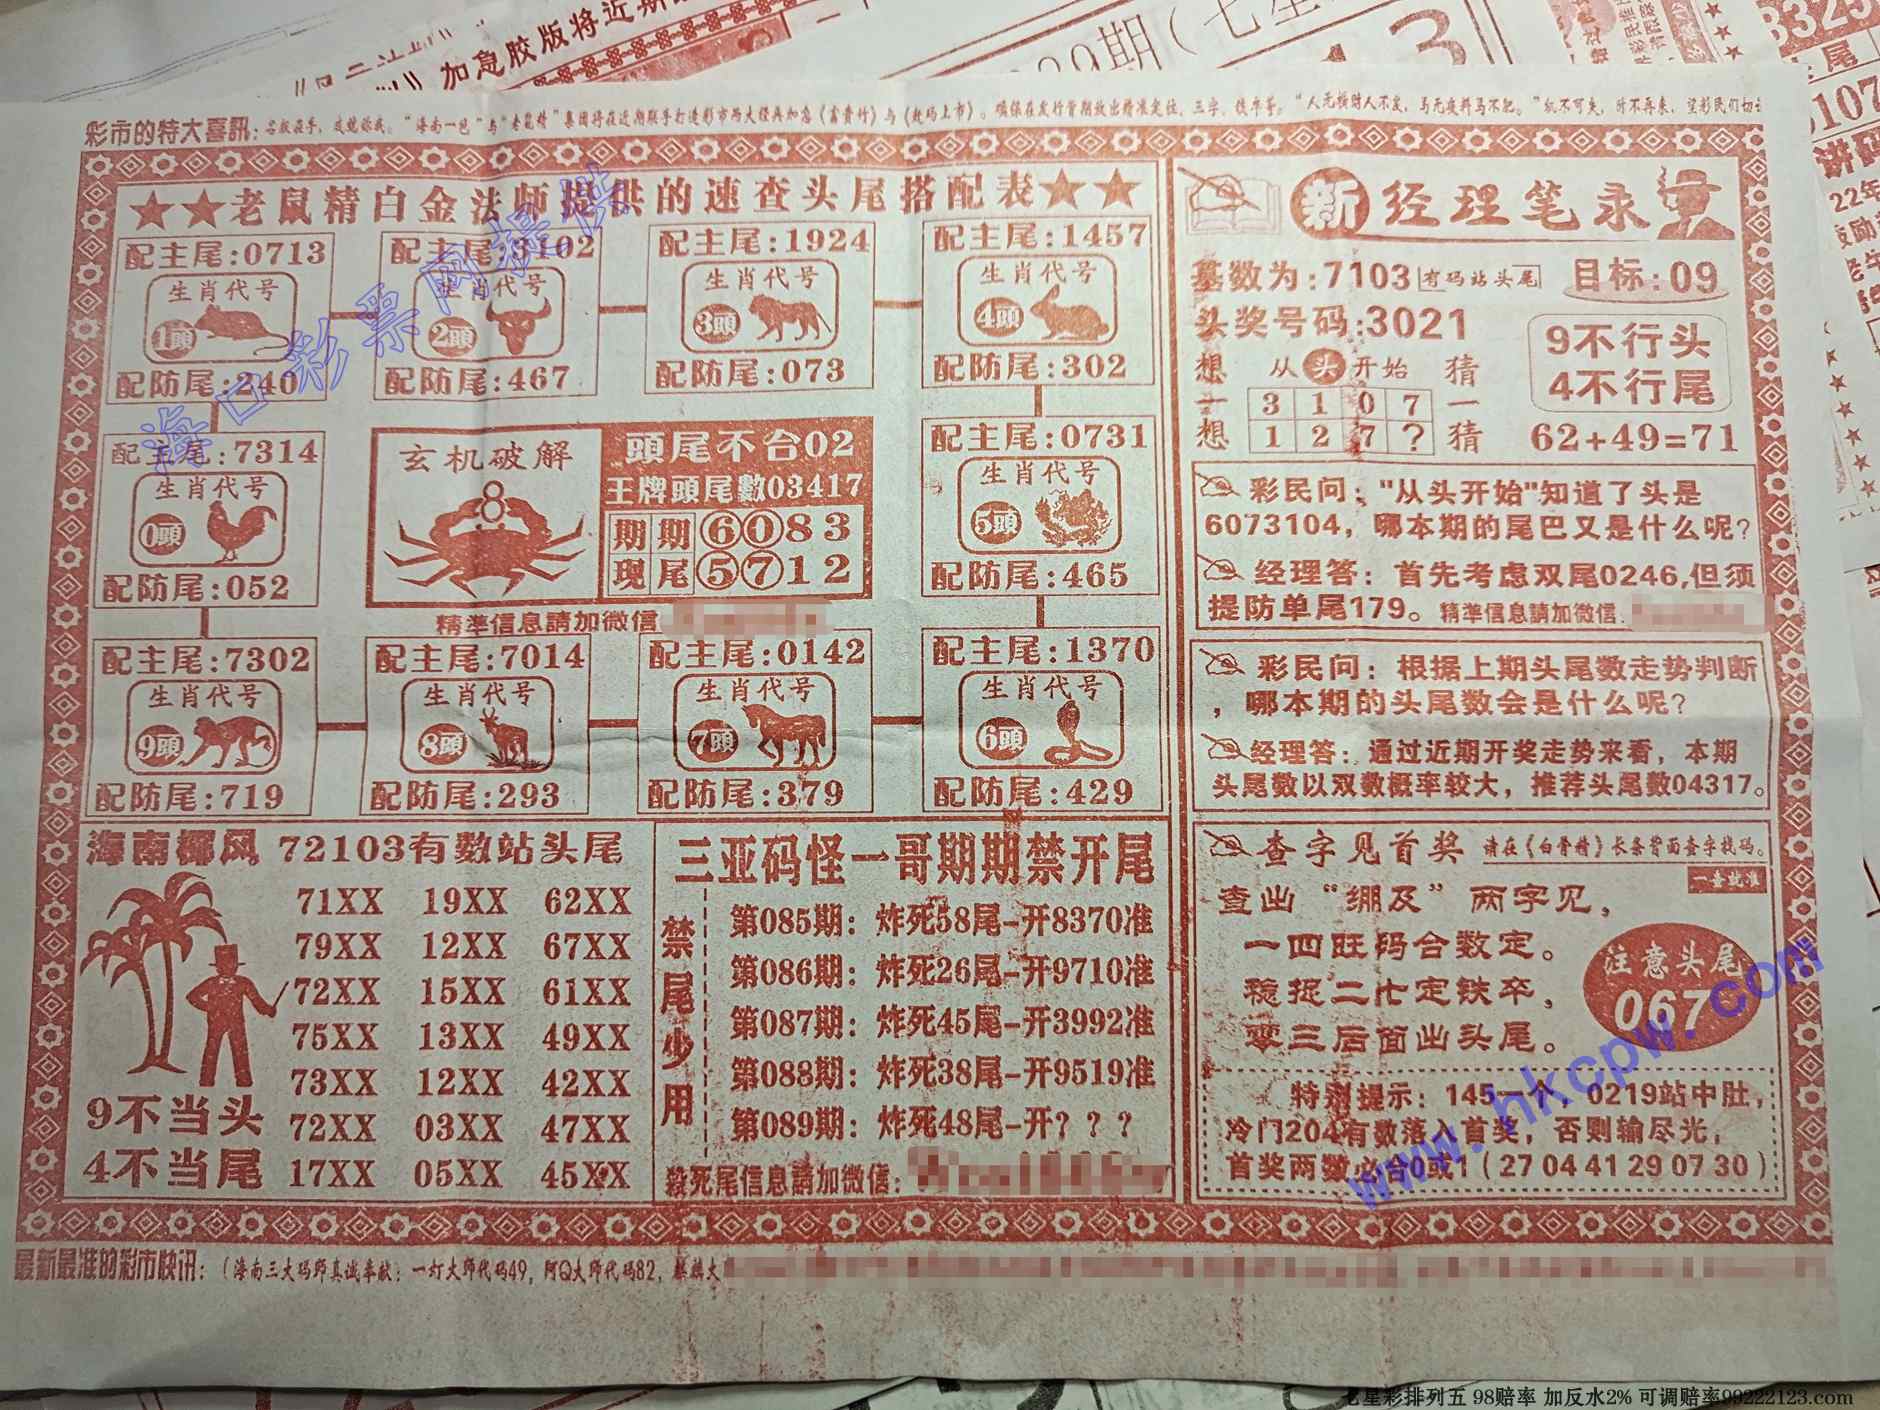 加急胶版将近期
彩市的特大喜訊:
★★老鼠精白金法师提供的速查头尾搭配表★★
配主尾:0713
生肖代号
1頭
配防尾:240
配主尾:3102
生肖代号
2頭
配防尾:467
配主尾:1924
生肖代号
3頭
配防尾:073
配主尾:1457
生肖代号
4頭
配防尾:302
配主尾:7314
生肖代号
0頭
配防尾:052
玄机破解
8
頭尾不合02
王牌頭尾數03417
期期⑥⓪83
現尾⑤⑦12
配主尾:0731
生肖代号
5頭
配防尾:465
精準信息請加微信
配主尾:7302
生肖代号
9頭
配防尾:719
配主尾:7014
生肖代号
8頭
配防尾:293
配主尾:0142
生肖代号
7頭
配防尾:379
配主尾:1370
生肖代号
6頭
配防尾:429
海南椰风 72103有數站头尾
71XX 19XX 62XX
79XX 12XX 67XX
72XX 15XX 61XX
75XX 13XX 49XX
73XX 12XX 42XX
72XX 03XX 47XX
17XX 05XX 45XX
9不当头
4不当尾
三亚码怪一哥期期禁开尾
禁尾少用
第085期: 炸死58尾-开8370准
第086期: 炸死26尾-开9710准
第087期: 炸死45尾-开3992准
第088期: 炸死38尾-开9519准
第089期: 炸死48尾-开???
殺死尾信息請加微信:
新 经理笔录
基数为:7103 有码站头尾 目标:09
头奖号码:3021
9不行头
4不行尾
想一想 从头开始 猜一猜
3 1 0 7
1 2 7 ?
62+49=71
彩民问: "从头开始"知道了头是
6073104, 哪本期的尾巴又是什么呢?
经理答: 首先考虑双尾0246,但须
提防单尾179。精準信息請加微信:
彩民问: 根据上期头尾数走势判断
, 哪本期的头尾数会是什么呢?
经理答: 通过近期开奖走势来看, 本期
头尾数以双数概率较大, 推荐头尾数04317。
查字见首奖 请在《白骨精》长条背面查字找码。
一查就准
查出“绷及”两字见,
一四旺码合数定。
稳捉二七定铁卒,
零三后面出头尾。
注意头尾
067
特别提示: 145一个, 0219站中肚,
冷门204有数落入首奖, 否则输尽光,
首奖两数必合0或1(27 04 41 29 07 30)
最新最准的彩市快讯: (海南三大码师真诚奉献: 一灯大师代码49, 阿Q大师代码82, 麒麟大
海口彩票网提供
www.hkcpw.com
七星彩排列五 98赔率 加反水2% 可调赔率99222123.com